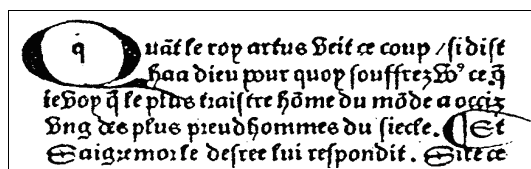 Quãt le roy artus veit ce coup / si dist
haa dieu pour quoy souffrez võꝰ ce. q̃
ie voy q̃ le plus traistre hõme du mõde a occiz
vng des plus preudhommes du siecle. Et
Saigremor le desree lui respondit. Sire ce